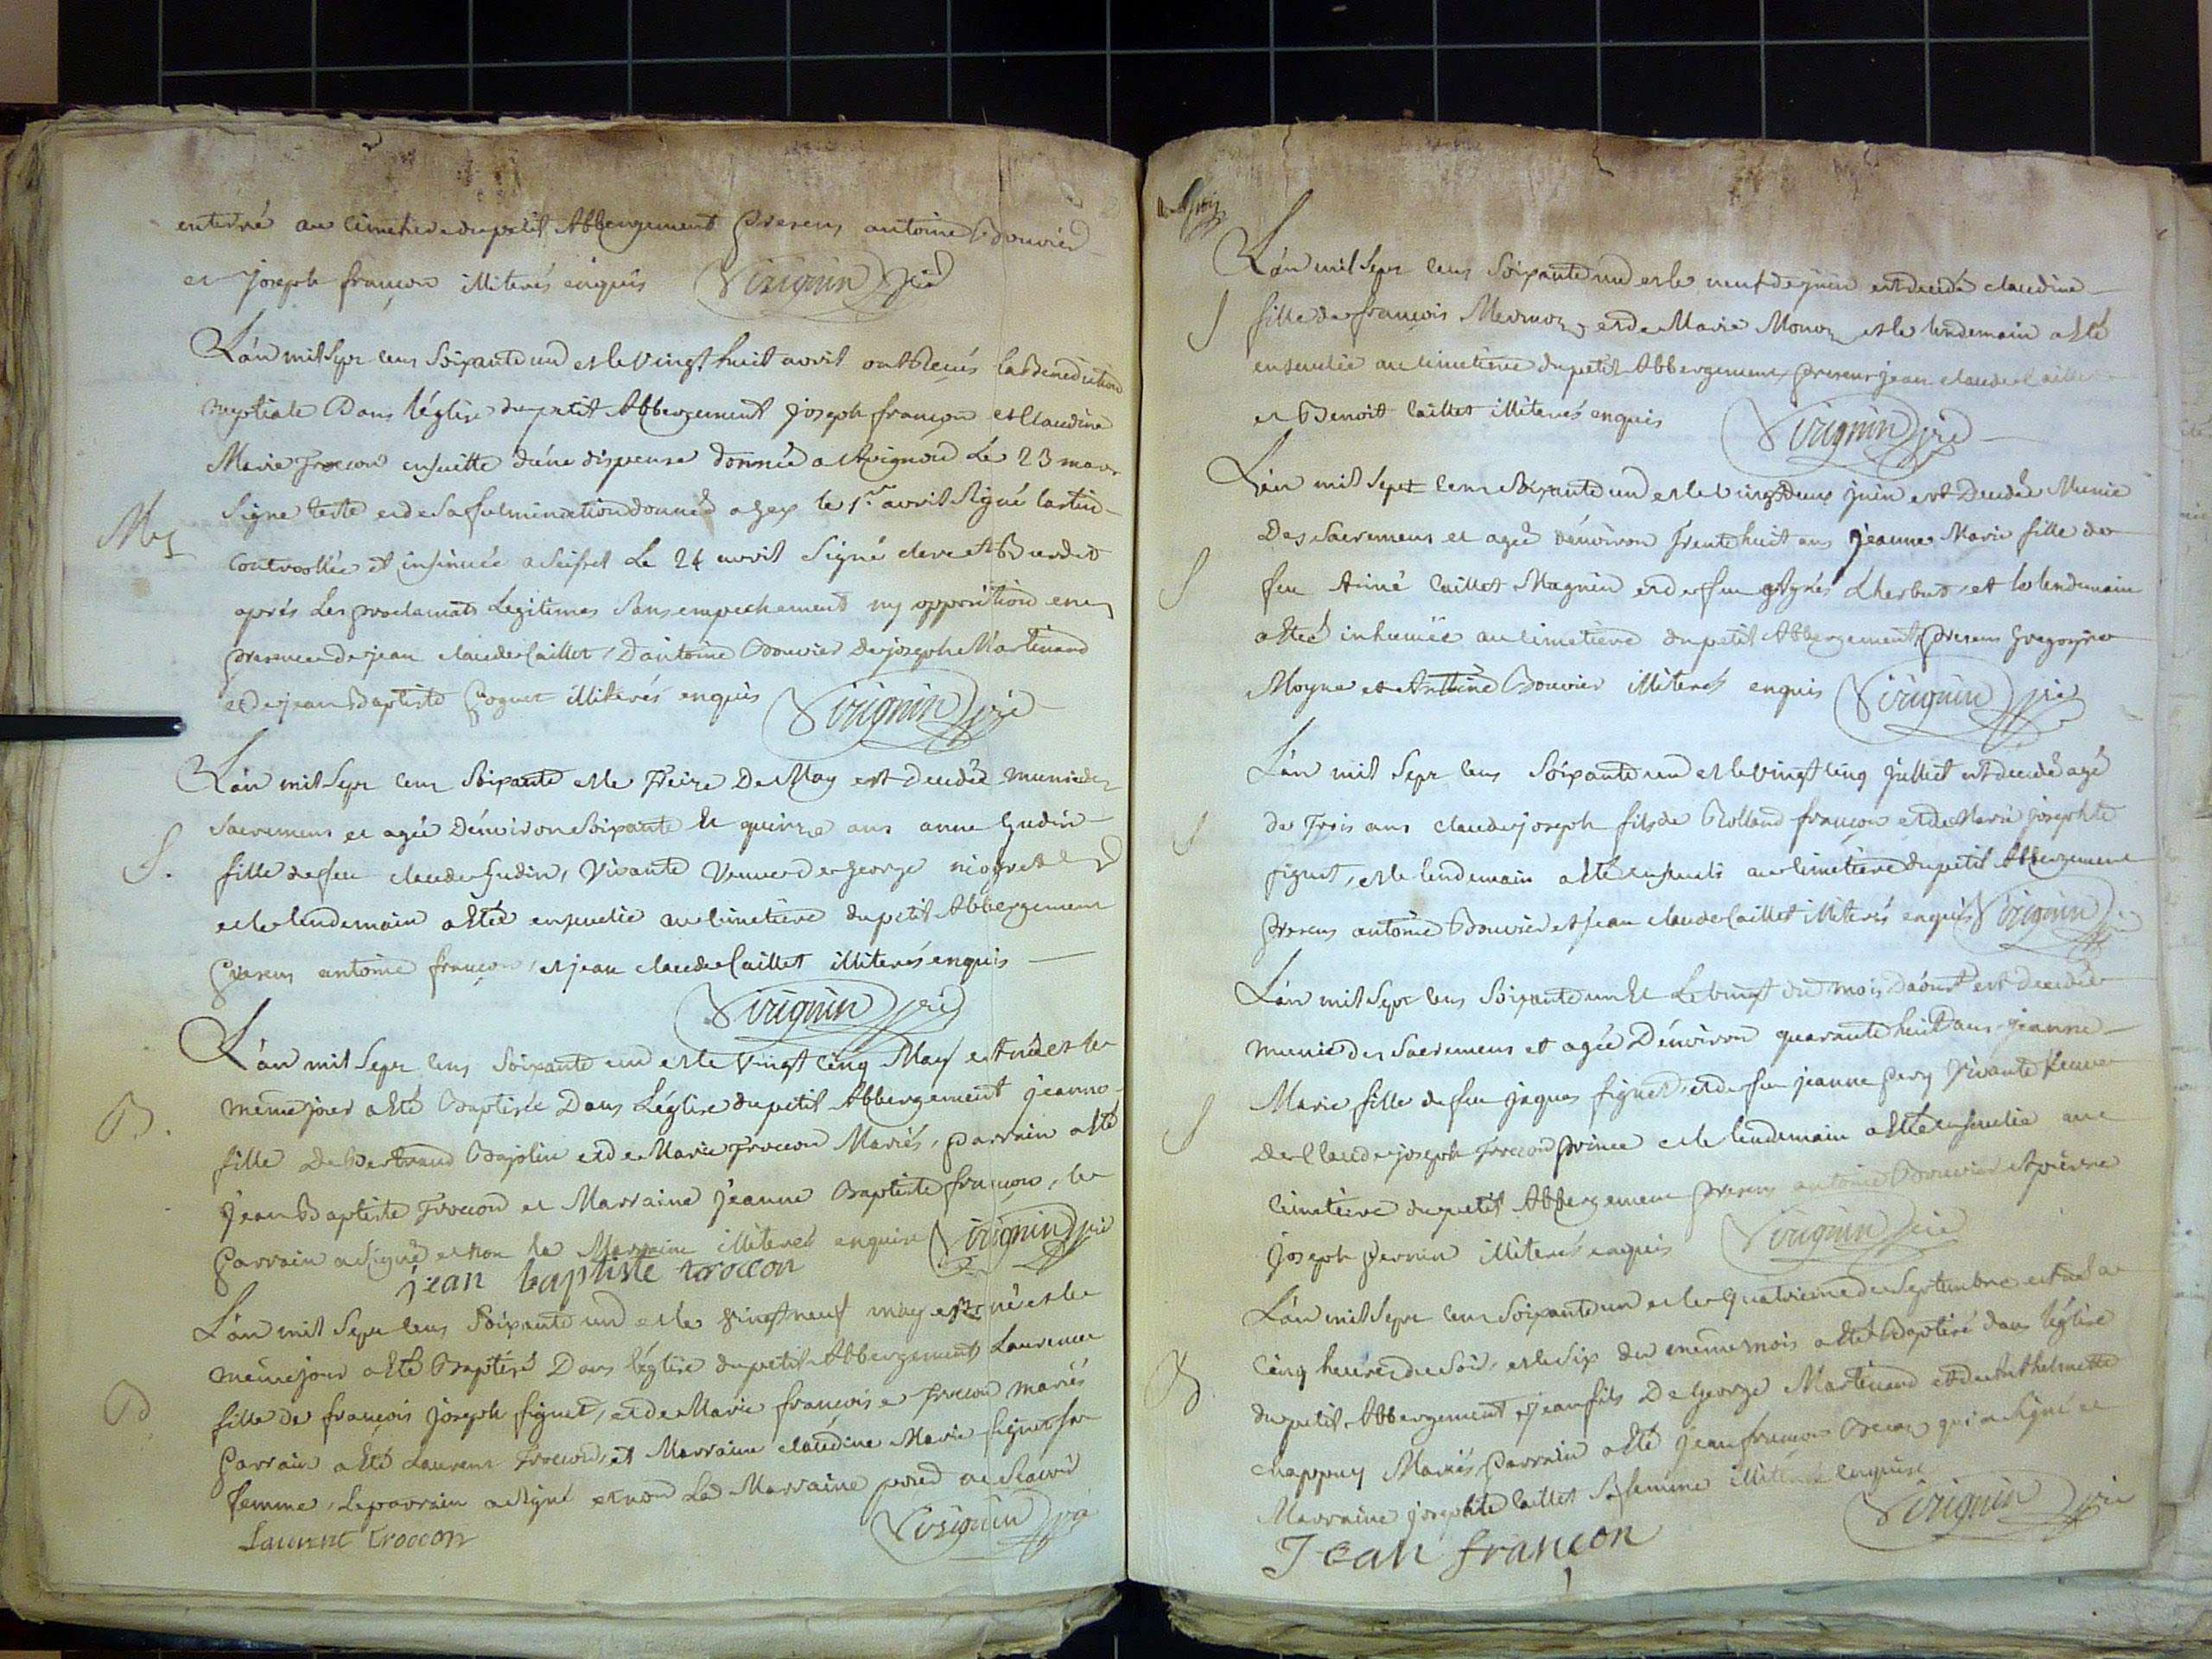 enterré au cimetiere du petit Abbergement presens antoine Bouvier
et joseph françon illiterés enquis Virignin pré
L'an mil sept cens soixante un et le vingt huit avril ont Receus la Benediction
nuptiale Dans l'église du petit Abbergement joseph françon et Claudine
Marie Troccon ensuitte d'une dispense donnée a Avignon Le 23 mars
signé teste et de sa fulmination donnée a gex le 1er avril signé
controllée et insinuée a seissel Le 24 avril signé
M
aprés Les proclamats Legitimes sans empechement ny opposition en
presence de jean claude Caillet, d'antoine Bouvier de joseph Martinand
et de jean Baptiste illiterés enquis Virignin pré
L'an mil sept cens soixante et le Treize De May est decedée munie des
sacremens et agée d'environ soixante et quinze ans anne Gudin
S.
fille de feu claude Gudin, vivante veuve de george niogret
et le lendemain a Eté ensevelie au cimetiere du petit Abbergement
presens antoine françon, et jean claude Caillet illiterés enquis
Virignin pré
L'an mil sept cens soixante un et le vingt cinq May est née et le
même jour a Eté Baptisée Dans L'église du petit Abbergement jeanne
B.
fille De Bertrand Bajolin et de Marie Troccon Mariés, parrain a Eté
jean Baptiste Troccon et Marraine jeanne Baptiste françon, le
parrain a signé et non la Marraine illiterée enquise Virignin pré
jean baptiste troccon
L'an mil sept cens soixante un et le vingt neuf may est né et le
même jour a Eté Baptisé Dans l'église du petit Abbergement Laurence
B
fille de françois joseph figuet, et de Marie françoise Troccon mariés
parrain a Eté Laurent Troccon, et Marraine claudine Marie figuet sa
femme, Le parrain a signé et non La Marraine pour ne sçavoir
Laurent troccon Virignin pré
L'an mil sept cens soixante un et le neuf de juin est decedée claudine
S
fille de françois Mermoz, et de Marie Monoz et le lendemain a Eté
ensevelie au cimetiere du petit Abbergement, presens jean claude Caillet
et Benoit Caillet illiterés enquis Virignin pré
L'an mil sept cens soixante un et le vingt deux juin est Decedée Munie
Des sacremens et agée d'environ trente huit ans jeanne Marie fille de
S
feu Aimé Caillet Magnin et de feu Agnés Lherbut, et le lendemain
a Eté inhumée au cimetiere du petit Abbergement, presens gregoire
Moyne et Antoine Bouvier illiterés enquis Virignin pré
L'an mil sept cens soixante un et le vingt cinq juillet est decedé agé
de Trois ans claude joseph fils de Rolland françon et de Marie josephte
S
figuet, et le lendemain a Eté enseveli au cimetiere du petit Abbergement
presens antoine Bouvier et jean claude Caillet illiterés enquis Virignin pré
L'an mil sept cens soixante un et Le vingt du mois d'aoust est decedée
munie des sacremens et agée D'environ quarante huit ans jeanne
Marie fille de feu jaques figuet, et de feu jeanne pery vivante veuve
S
de Claude joseph Troccon prince et le lendemain a Eté ensevelie au
cimetiere du petit Abbergement presens antoine Bouvier et pierre
joseph perrin illiterés enquis Virignin pré
L'an mil sept cens soixante un et le quatrieme de septembre est né a
cinq heures du soir, et le six du même mois a Eté Baptisé dans l'église
B
du petit Abbergement jean fils De george Martinand et de Anthelmette
chappuy Mariés, parrain a Eté jean françon qui a signé et
Marraine josephte Caillet sa femme illiterée enquise
Jean françon Virignin pré